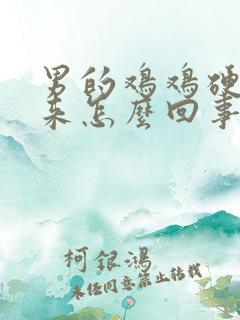 男的鸡鸡硬
来怎么回事
柯银鸿
未经同意禁止转载